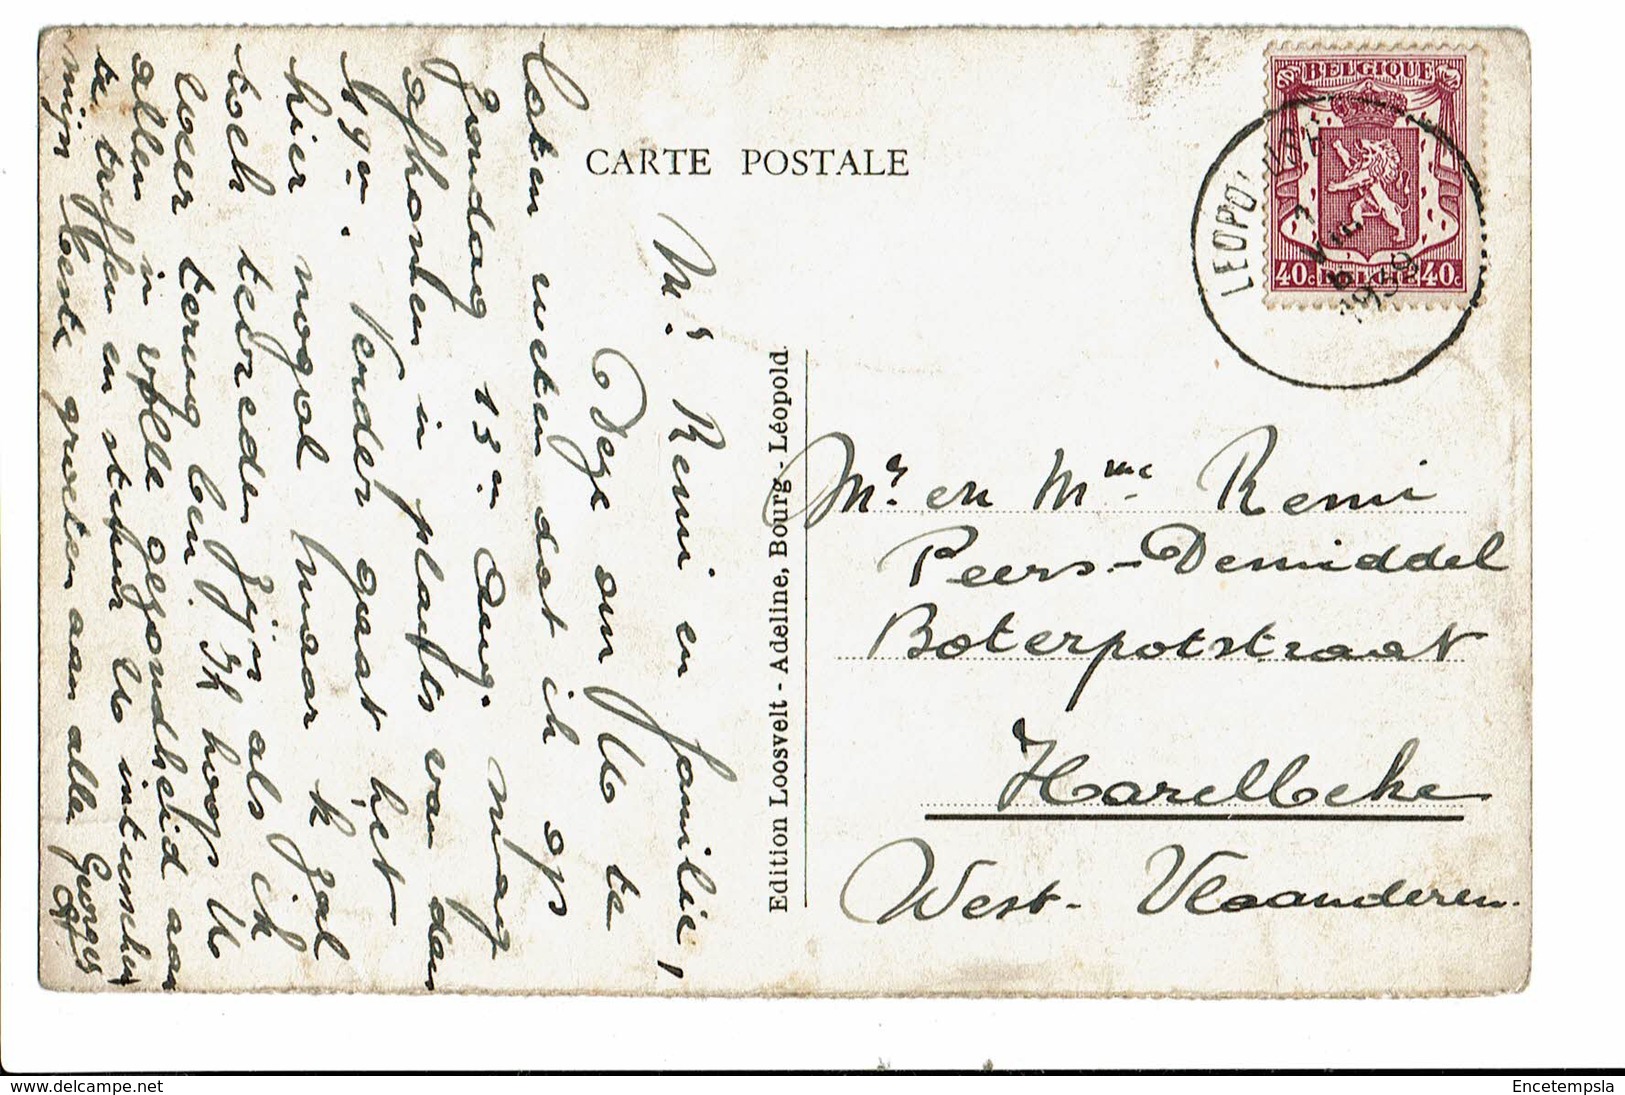 CARTE POSTALE
BELGIQUE
40c BELGIE 40c
LEOPO
1939
Mr Remi en familie,
Deze om U te
laten weten dat ik op
Zondag 13en Aug. mag
afkomen in plaats van den
Verder gaat het
hier nogal maar k zal
toch tevreden zijn als ik
weer terug ben. Ik hoop U
allen in volle gezondheid aan
te treffen en stuur U intusschen
mijn beste groeten aan allen Georges
Edition Loosvelt - Adeline, Bourg - Léopold.
Mr. en Mme. Remi
Peers-Demiddel
Boterpotstraat
Harelbeke
West-Vlaanderen.
delcampe.net
Encetempsla